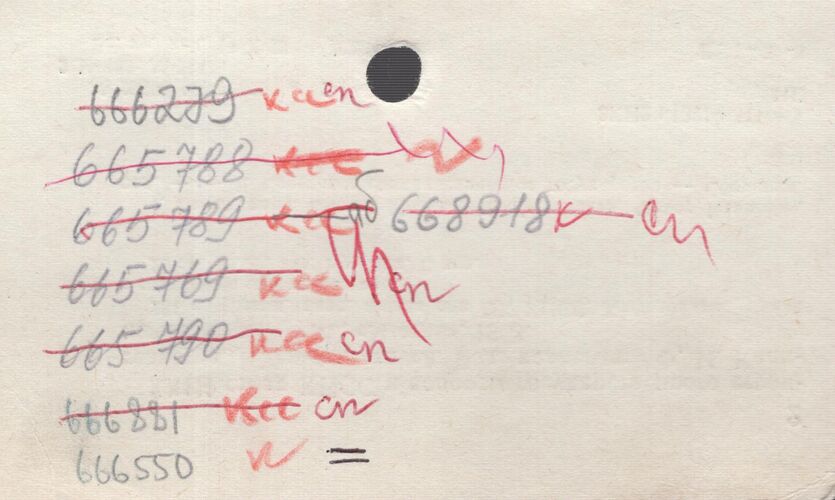 666279 ксс сп
665788 ксс
665789 ксс аб 668918 к сп
665769 ксс сп
665790 ксс сп
666881 ксс сп
666550 к =